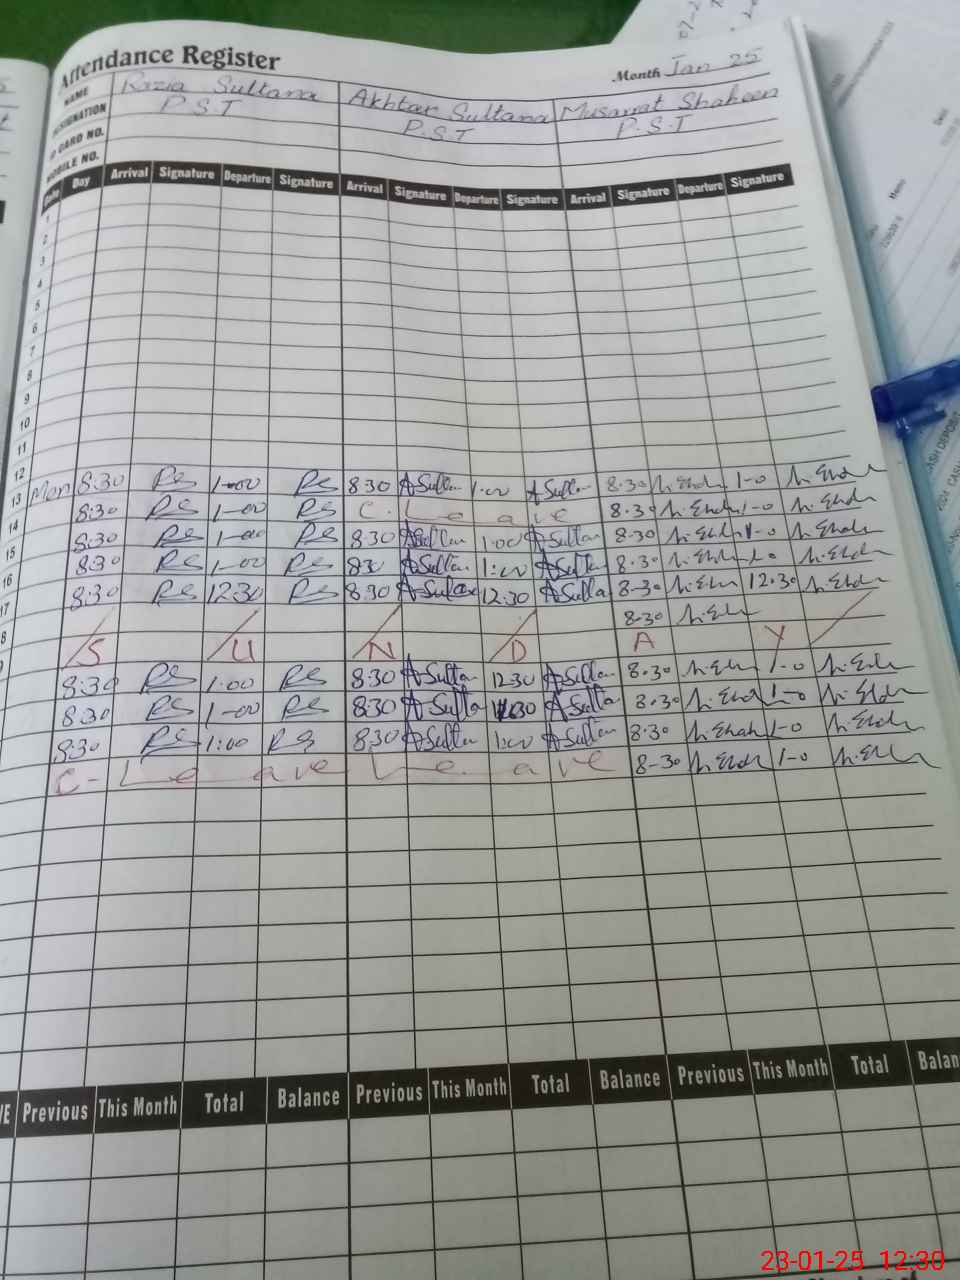 Attendance Register
Month Jan 25
NAME Razia Sultana Akhtar Sultana Musarrat Shaheen
DESIGNATION P.S.T P.S.T P.S.T
ID CARD NO.
MOBILE NO.
Date Day Arrival Signature Departure Signature Arrival Signature Departure Signature Arrival Signature Departure Signature
1
2
3
4
5
6
7
8
9
10
11
12
13 Mon 8:30 RS 1-00 RS 8:30 A Sultan 1:00 A Sultan 8-30 1-0
14 8:30 RS 1-00 RS C. Leave 8-30 1-0
15 8:30 RS 1-00 RS 8:30 A Sultan 1:00 A Sultan 8-30 1-0
16 8:30 RS 1-00 RS 8:30 A Sultan 1:00 A Sultan 8-30 1-0
17 8:30 RS 12:30 RS 8:30 A Sultan 12:30 A Sultan 8-30 12.30
8 8-30
S U N D A Y
8:30 RS 1:00 RS 8:30 A Sultan 12:30 A Sultan 8-30 1-0
8:30 RS 1-00 RS 8:30 A Sultan A Sultan 8-30 1-0
8:30 RS 1:00 RS 8:30 A Sultan 1:00 A Sultan 8:30 1-0
C-Leave Leave 8-30 1-0
Previous This Month Total Balance Previous This Month Total Balance Previous This Month Total Balan
23-01-25 12:30